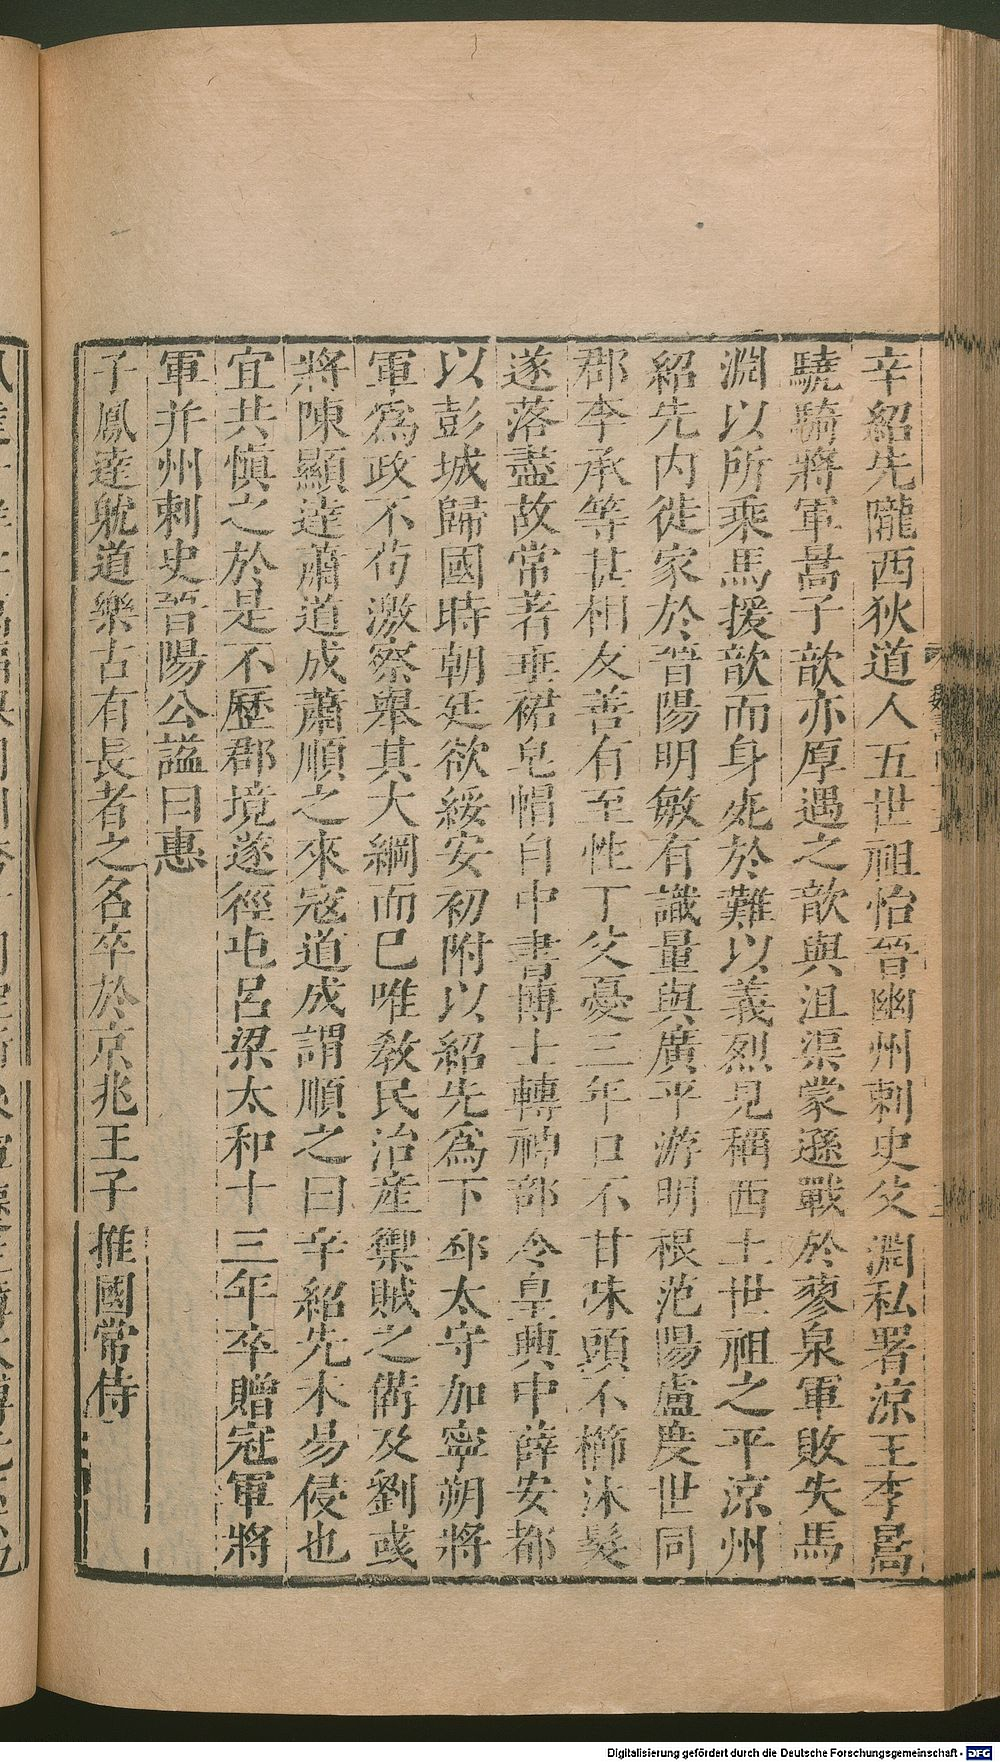 辛紹先隴西狄道人五世祖怡晉幽州刺史父淵私署涼王李暠
驍騎將軍暠子歆亦厚遇之歆與沮渠蒙遜戰於蓼泉軍敗失馬
淵以所乘馬援歆而身死於難以義烈見稱西土世祖之平涼州
紹先内徙家於晉陽明敏有識量與廣平游明根范陽盧度世同
郡李承等甚相友善有至性丁父憂三年口不甘味頭不櫛沐髮
遂落盡故常著垂裙皂帽自中書博士轉神部令皇興中薛安都
以彭城歸國時朝廷欲綏安初附以紹先爲下邳太守加寧朔將
軍爲政不苟激察舉其大綱而已唯敎民治產禦賊之備及劉彧
將陳顯達蕭道成蕭順之來寇道成謂順之曰辛紹先未易侵也
宜共慎之於是不歷郡境遂徑屯呂梁太和十三年卒贈冠軍將
軍并州刺史晉陽公謚曰惠
子鳳達躭道樂古有長者之名卒於京兆王子推國常侍
Digitalisierung gefördert durch die Deutsche Forschungsgemeinschaft - DFG